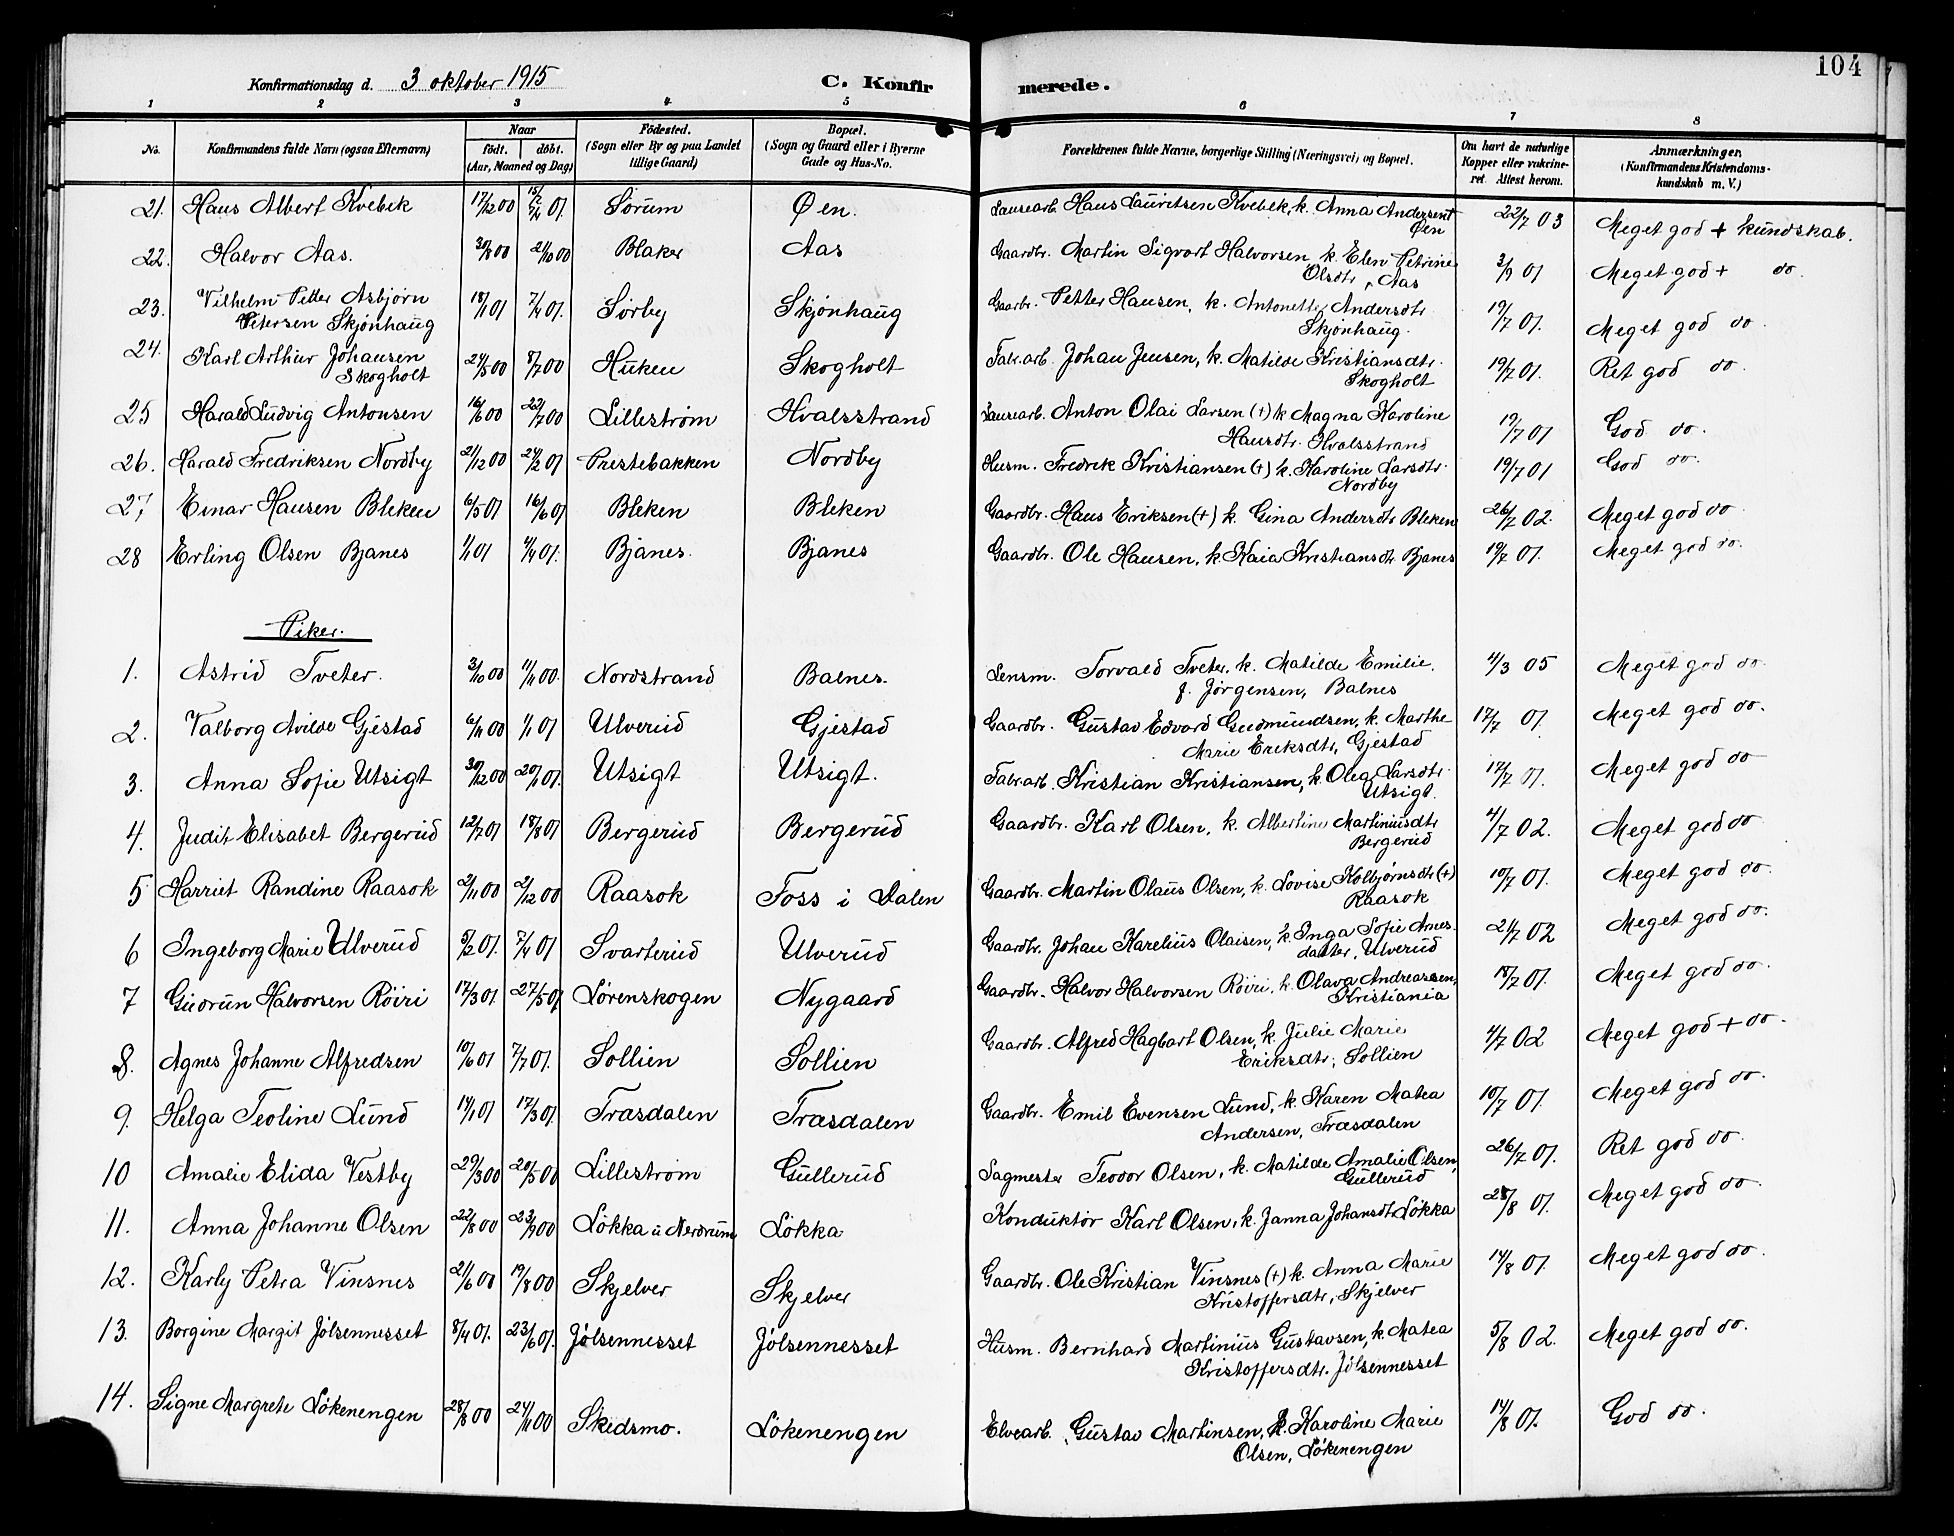 104
Konfirmationsdag d. 3 oktober 1915 C. Konfirmerede.
1 2 3 4 5 6 7 8
No. Konfirmandens fulde Navn (ogsaa Efternavn) Naar født. døbt. (Aar, Maaned og Dag) Fødested. (Sogn eller By og paa Landet tillige Gaard) Bopæl. (Sogn og Gaard eller i Byerne Gade og Hus-No. Forældrenes fulde Navne, borgerlige Stilling (Næringsvei) og Bopæl. Om havt de naturlige Kopper eller vakcineret. Attest herom. Anmærkninger. (Konfirmandens Kristendomskundskab m. V.)
21. Hans Albert Kvebek 17/12 00 Sørum Øen. Hans Lauritsen Kvebek, k. Anna Andersen Øen 22/7 03 Meget god + kundskab.
22. Halvor Aas. 30/8 00 21/10 00 Blaker Aas Gaardbr. Martin Sigvart Halvorsen, k. Elen Petrine Olsdtr, Aas 3/9 01 Meget god + do.
23. Vilhelm Petter Asbjørn Petersen Skjønhaug 18/1 01 7/4 01. Sørby Skjønhaug Gaarbr. Petter Hansen, k. Antonette Andersdtr Skjønhaug. 19/7 01. Meget god do.
24. Karl Arthur Johansen Skogholt 24/5 00 8/7 00 Huken Skogholt Fabr.arb. Johan Jensen, k. Matilde Kristiansdtr. Skogholt 19/7 01. Ret god do.
25 Harald Ludvig Antonsen 16/6 00 22/7 00 Lillestrøm Hvalsstrand Anton Olai Larsen (+) k Magna Karoline Hansdtr. Hvalsstrand 19/7 01 God do.
26. Harald Fredriksen Nordby 21/12 00 24/2 01 Prestebakken Nordby Husm. Fredrik Kristiansen (+) k. Karoline Larsdtr. Nordby 19/7 01 God do.
27 Einar Hansen Bleken 6/5 01 16/6 01 Bleken Bleken Gaardbr. Hans Eriksen (+) k. Gina Andersdtr Bleken 26/7 02. Meget god do
28 Erling Olsen Bjanes 1/1 01 4/4 01. Bjanes. Bjanes Gaardbr. Ole Hansen, k. Kaia Kristiansdtr Bjanes 19/7 01. Meget god do.
Piker.
1. Astrid Tveter. 3/10 00 11/11 00. Nordstrand Balnes. Lensm. Torvald Tveter, k. Matilde Emilie, f. Jørgensen, Balnes 4/3 05 Meget god do.
2. Valborg Avilde Gjestad 6/11 00 1/1 01 Ulverud Gjestad Gaardbr. Gustav Edvard Gudmundsen, k. Marthe Marie Eriksdtr, Gjestad 17/7 01. Meget god do.
3. Anna Sofie Utsigt 30/12 00 20/1 01. Utsigt Utsigt. Fabr.arb. Kristian Kristiansen, k. Olea Larsdtr. Utsigt. 17/7 01. Meget god do
4. Judit Elisabet Bergerud 12/7 01 18/8 01 Bergerud Bergerud Gaardbr. Karl Olsen, k. Albertine Martiniusdtr Bergerud 4/7 02. Meget god do
5 Harriet Randine Raasok 2/11 00 2/12 00 Raasok Foss i Dalen Gaardbr. Martin Olaus Olsen, k. Lovise Kolbjørnsdtr (+) Raasok 10/7 01. Meget god do.
6 Ingeborg Marie Ulverud 5/2 01. 7/4 01 Svarterud Ulverud Gaardbr. Johan Karelius Olaisen, k. Inga Sofie Arnesdatter, Ulverud 21/7 02 Meget god do.
7 Gudrun Halvorsen Röiri 17/3 01 27/5 01 Lørenskogen Nygaard Gaardbr. Halvor Halvorsen Röiri, k. Olava Andreassen, Kristiania 18/7 01. Meget god do.
8. Agnes Johanne Alfredsen 10/6 01 7/7 01. Sollien Sollien Gaardbr. Alfred Hagbart Olsen, k. Julie Marie Eriksdtr, Sollien 4/7 02 Meget god + do.
9. Helga Teoline Lund 14/1 01 17/3 01 Træsdalen Træsdalen Gaardbr. Emil Evensen Lund, k. Karen Matea Andersen, Træsdalen 10/7 01. Meget god do.
10 Amalie Elida Vestby 29/3 00 20/5 00 Lillestrøm Gullerud Sagmester Teodor Olsen, k. Matilde Amalie Olsen, Gullerud 26/7 01. Ret god do.
11. Anna Johanne Olsen 22/8 00 23/9 00 Løkka u Nerdrum Løkka Konduktør Karl Olsen, k. Janna Johansdtr Løkka 28/8 01. Meget god do.
12. Karly Petra Vinsnes 21/6 00 19/8 00 Skjelver Skjelver Gaardbr. Ole Kristian Vinsnes (+) k. Anna Marie Kristoffersdtr, Skjelver 14/8 01. Meget god do.
13. Borgine Margit Jølsennesset 8/4 01. 23/6 01. Jølsennesset Jølsennesset Husm. Bernhard Martinius Gustavsen, k. Matea Kristoffersdtr. Jølsennesset 5/8 02. Meget god do.
14. Signe Margrete Løkenengen 28/8 00 24/11 00 Skedsmo. Løkenengen Elvearb. Gustav Martinsen, k. Karoline Marie Olsen, Løkenengen 14/8 01. God do.